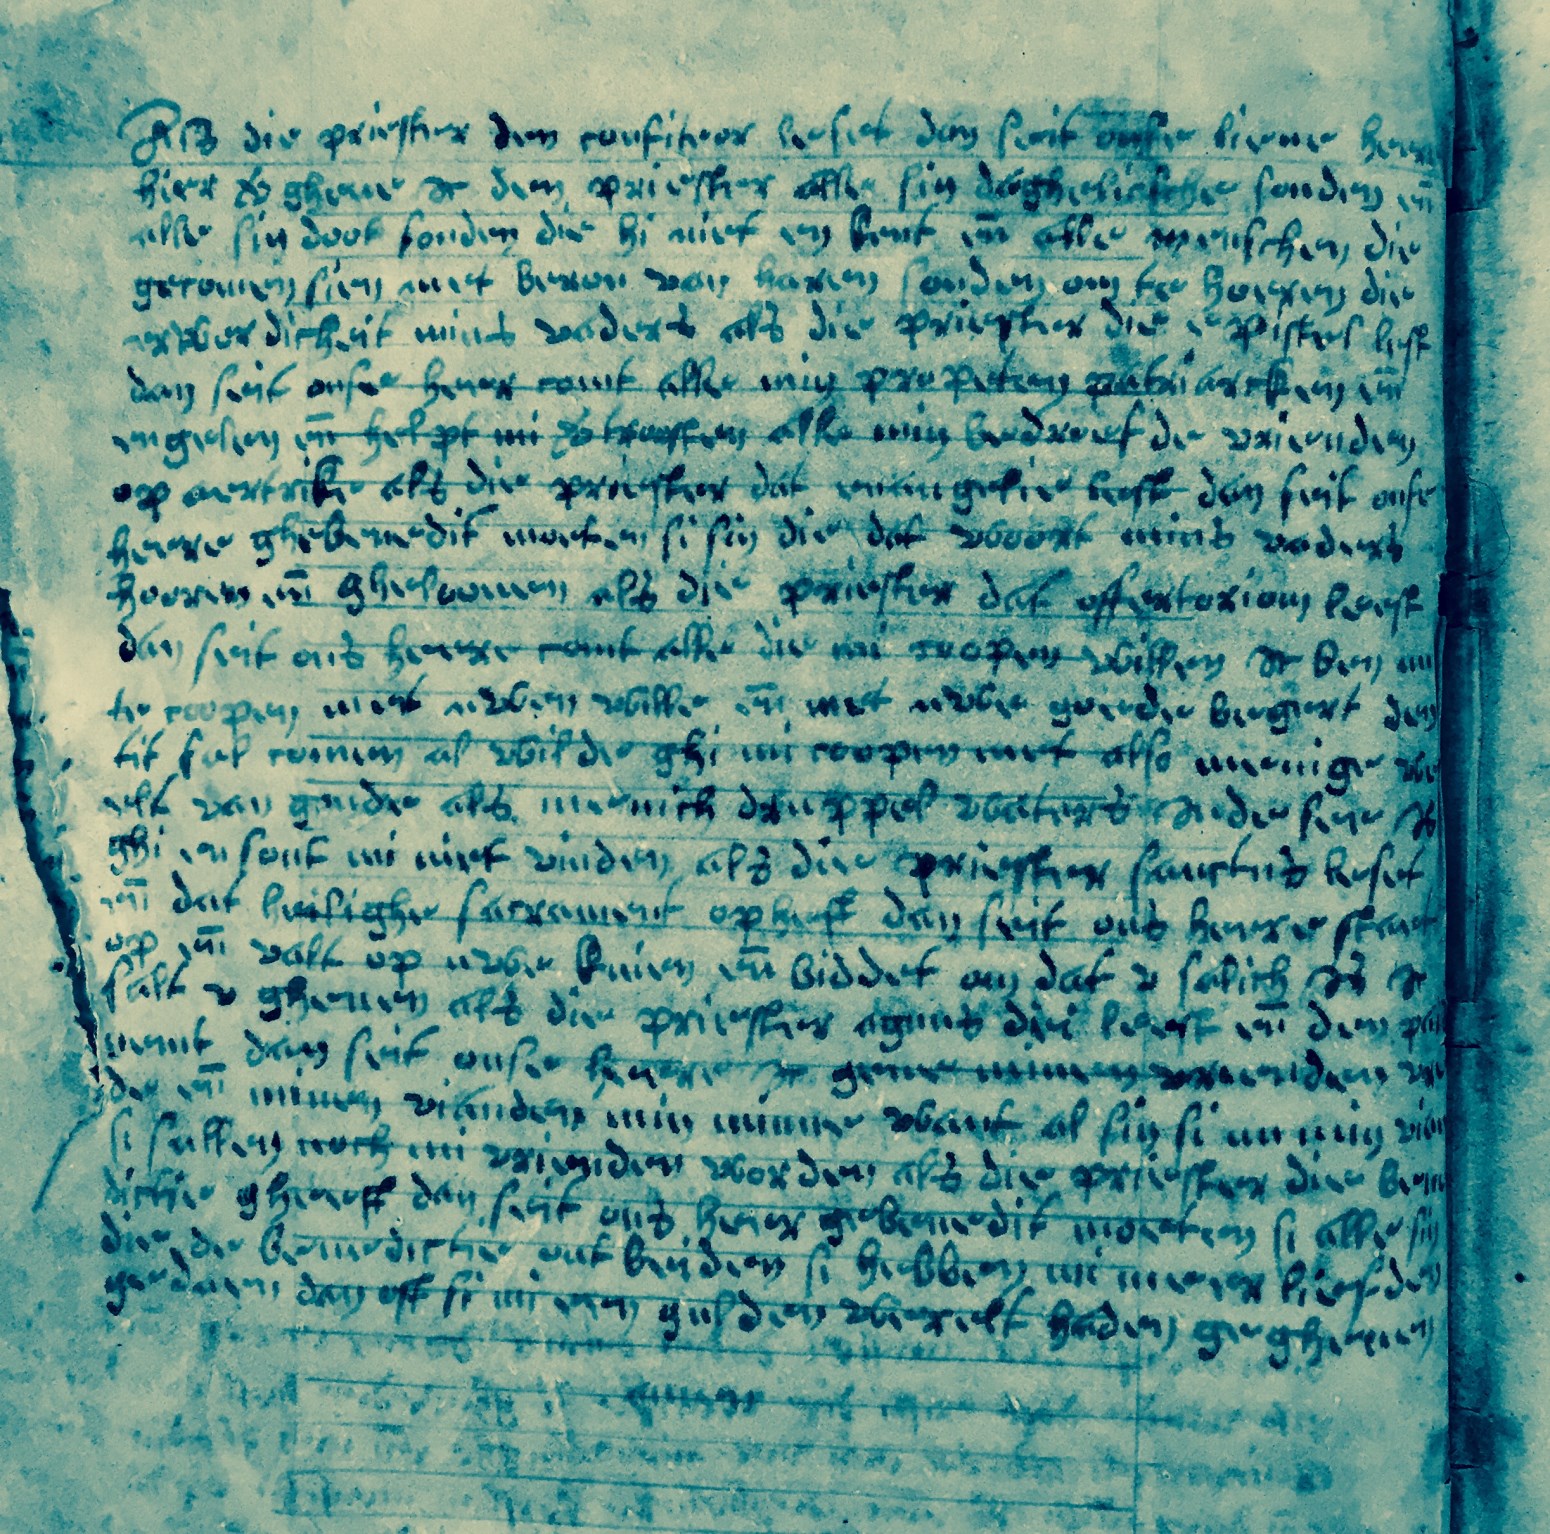 Als die priester den confiteor leset dan seit onse lieve heer
hier vergheve ic den priester alle sin daghelicsche sonden eñ
alle sin doot sonden die hi niet en kent eñ alle menschen die
gecomen sien met berou van haren sonden om te hoeren die
erwerdicheit mins vaders als die priester die epistel lest
dan seit onse heer comt alle min propeten patriarcken eñ
engelen eñ helpt mi vertroesten alle min bedroefde vrienden
op aertrike als die priester dat evangelie lest dan seit onse
heere ghebenedit moeten si sin die dat woort mins vaders
hooren eñ gheloouen als die priester dat offertoriom leest
dan seit ons heere comt alle die mi coopen willen ic ben nu
te coopen met uwen wille eñ met uwe goede begert den
tit sal comen al wilde ghi mi coopen met also menige we
relt van goude als menich druppel waters inde see is
ghi en sout mi niet vinden als die priester sanctus leset
eñ dat heilighe sacrament opheft dan seit ons heere staet
op eñ valt op uwe knien eñ biddet om dat v salich is ic
salt v gheuen als die priester agnus dei leest eñ den pa
ment dan seit onse heere ic geue minen vrienden vre
de eñ minen vianden min minne want al sin si nu min vian
si sullen noch mi vrienden worden als die priester die bene
dictie gheeft dan seit ons heer gebenedit moeten si alle sin
die de benedictie ont beiden si hebben mi meer liefden
gedaen dan oft si mi een gulden werelt haden gegheuen
amen